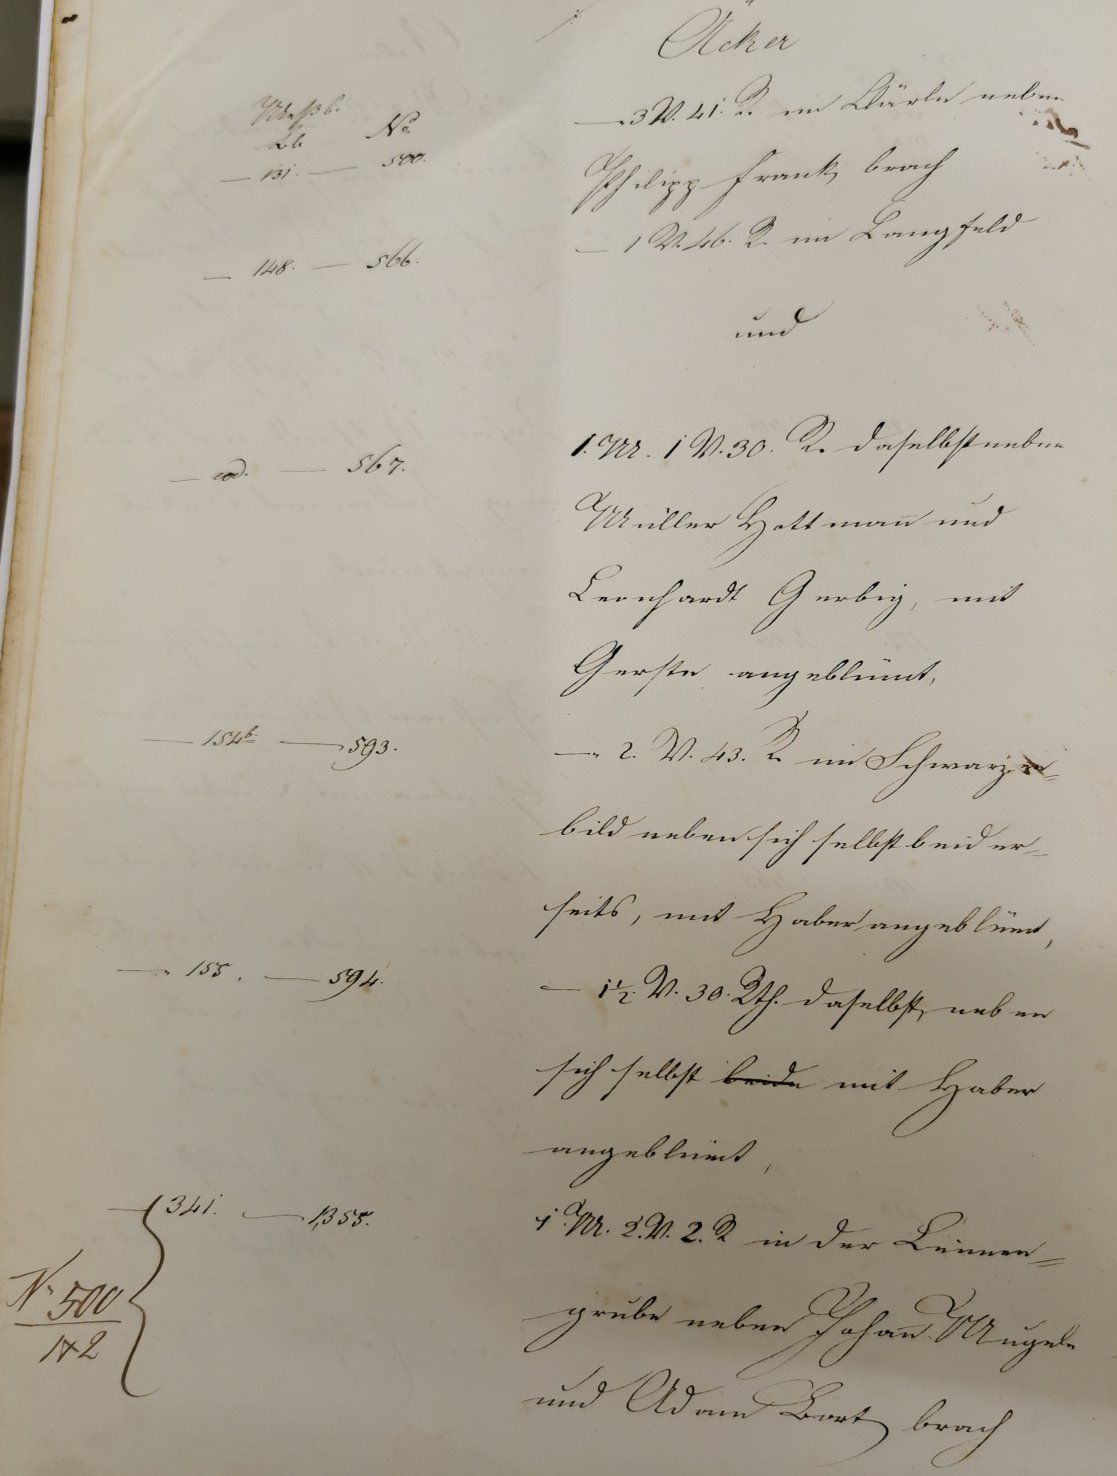 Äcker
Meßb.
Bl. — No.
— 131. — 500. — 3 V. 41. R. im neben
Philipp Frank, brach
— 148. — 566. — 1 V. 46. R. im Langfeld
und
— eod. — 567. 1. M. 1 V. 30. R. daselbst neben
Müller Hottmann und
Leonhardt Gerbig, mit
Gerste angeblümt,
— 154b. — 593. — 2. V. 43. R. im Schwarzen-
bild neben sich selbst beider-
seits, mit Haber angeblümt,
— 155. — 594. — 1 1/2. V. 30. Rth. daselbst, neben
sich selbst beide mit Haber
angeblümt,
— 341. — 1,355. 1 M. 2. V. 2. R in der Leimen-
No 500
1&2
grube neben Johann Mugele
und Adam Bort, brach